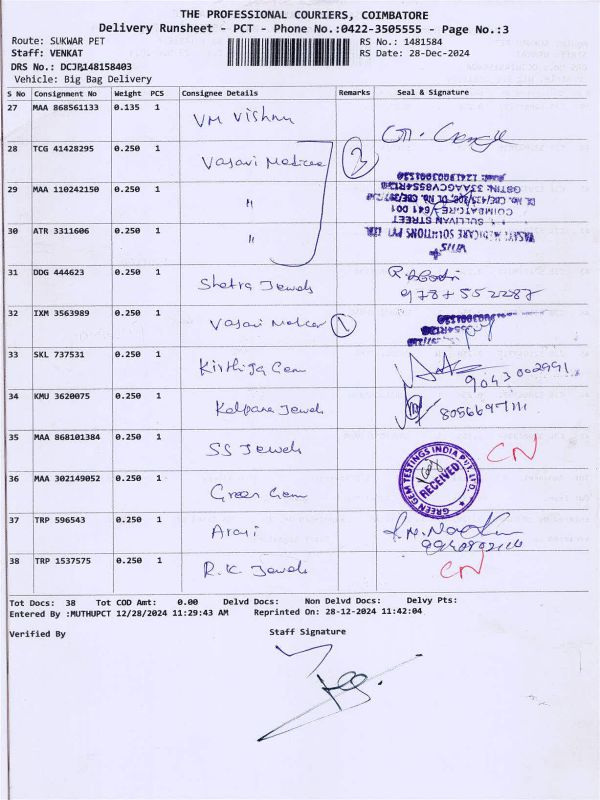 THE PROFESSIONAL COURIERS, COIMBATORE
Delivery Runsheet - PCT - Phone No.:0422-3505555 - Page No.:3
Route: SUKWAR PET RS No.: 1481584
Staff: VENKAT RS Date: 28-Dec-2024
DRS No.: DCJP148158403
Vehicle: Big Bag Delivery
S No Consignment No Weight PCS Consignee Details Remarks Seal & Signature
27 MAA 868561133 0.135 1 VM Vishnu
28 TCG 41428295 0.250 1 Vasavi 3
29 MAA 110242150 0.250 1 "
30 ATR 3311606 0.250 1 "
31 DDG 444623 0.250 1 Shetra Jewels
32 IXM 3563989 0.250 1 Vasavi 1
33 SKL 737531 0.250 1 Kirthija Gem 9043002991
34 KMU 3620075 0.250 1 Kalpana Jewels
35 MAA 868101384 0.250 1 SS Jewels CN
36 MAA 302149052 0.250 1 Green Gem GREEN GEM TESTINGS INDIA PVT. LTD. RECEIVED
37 TRP 596543 0.250 1
38 TRP 1537575 0.250 1 R.K. Jewels CN
Tot Docs: 38 Tot COD Amt: 0.00 Delvd Docs: Non Delvd Docs: Delvy Pts:
Entered By :MUTHUPCT 12/28/2024 11:29:43 AM Reprinted On: 28-12-2024 11:42:04
Verified By Staff Signature